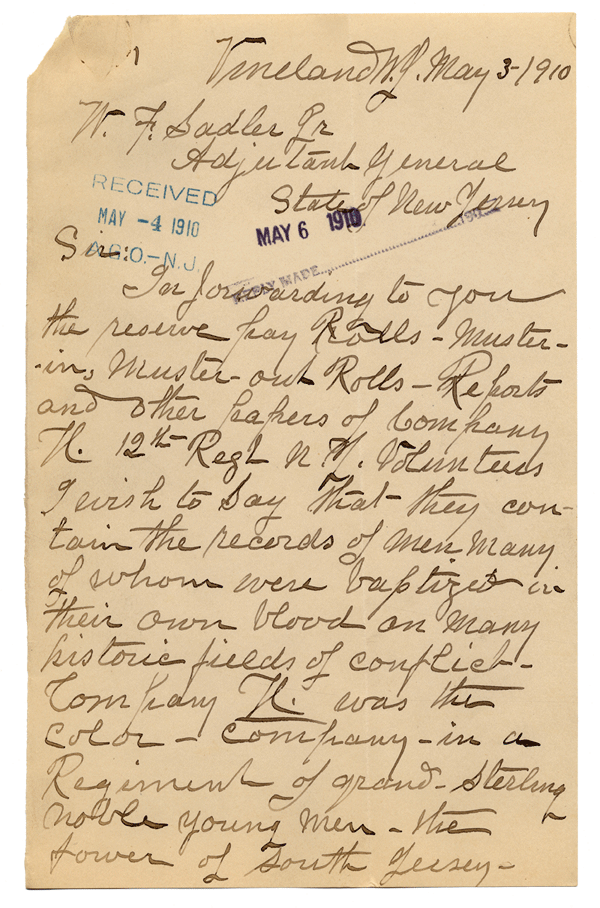 Vineland N.J. May 3-1910
W. F. Sadler Jr
Adjutant General
State of New Jersey
RECEIVED
MAY -4 1910
A.G.O.-N.J.
MAY 6 1910
MADE 190
Sir:
In forwarding to you
the reserve pay Rolls - Muster-
-in, Muster-out Rolls - Reports
and other papers of Company
K. 12th Regt N.J. Volunteers
I wish to say that they con-
tain the records of men many
of whom were baptized in
their own blood on many
historic fields of conflict -
Company K. was the
color - company - in a
Regiment of grand - sterling
noble young men - the
fower of South Jersey -